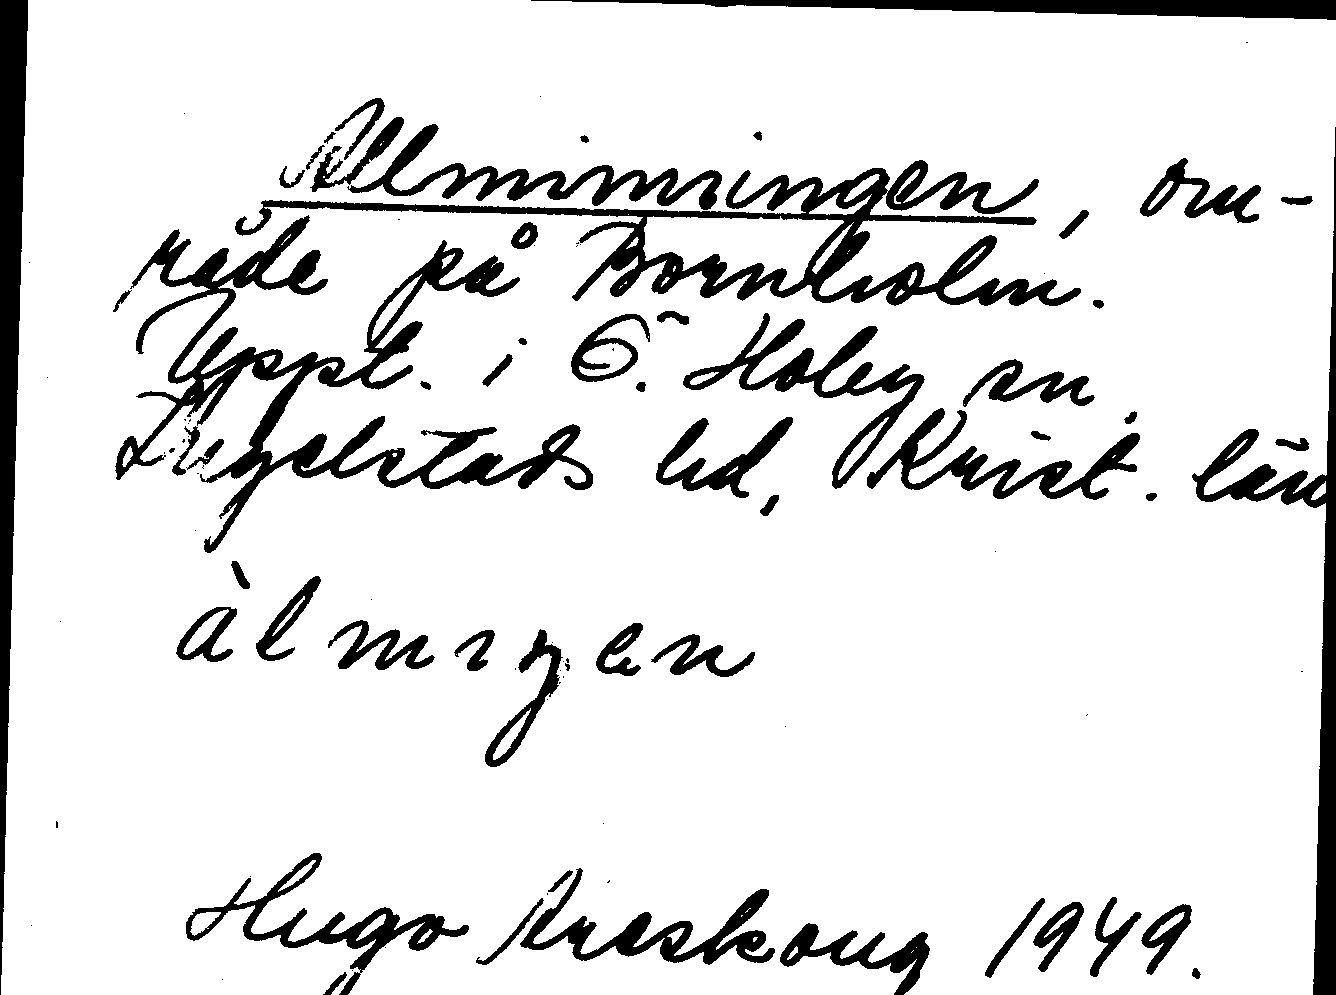 Allminningen, om-
råde på Bornholm.
Uppt. i Ö. Hoby sn,
Ingelstads hd, Krist. län
àlmıŋen
Hugo Areskoug 1949.